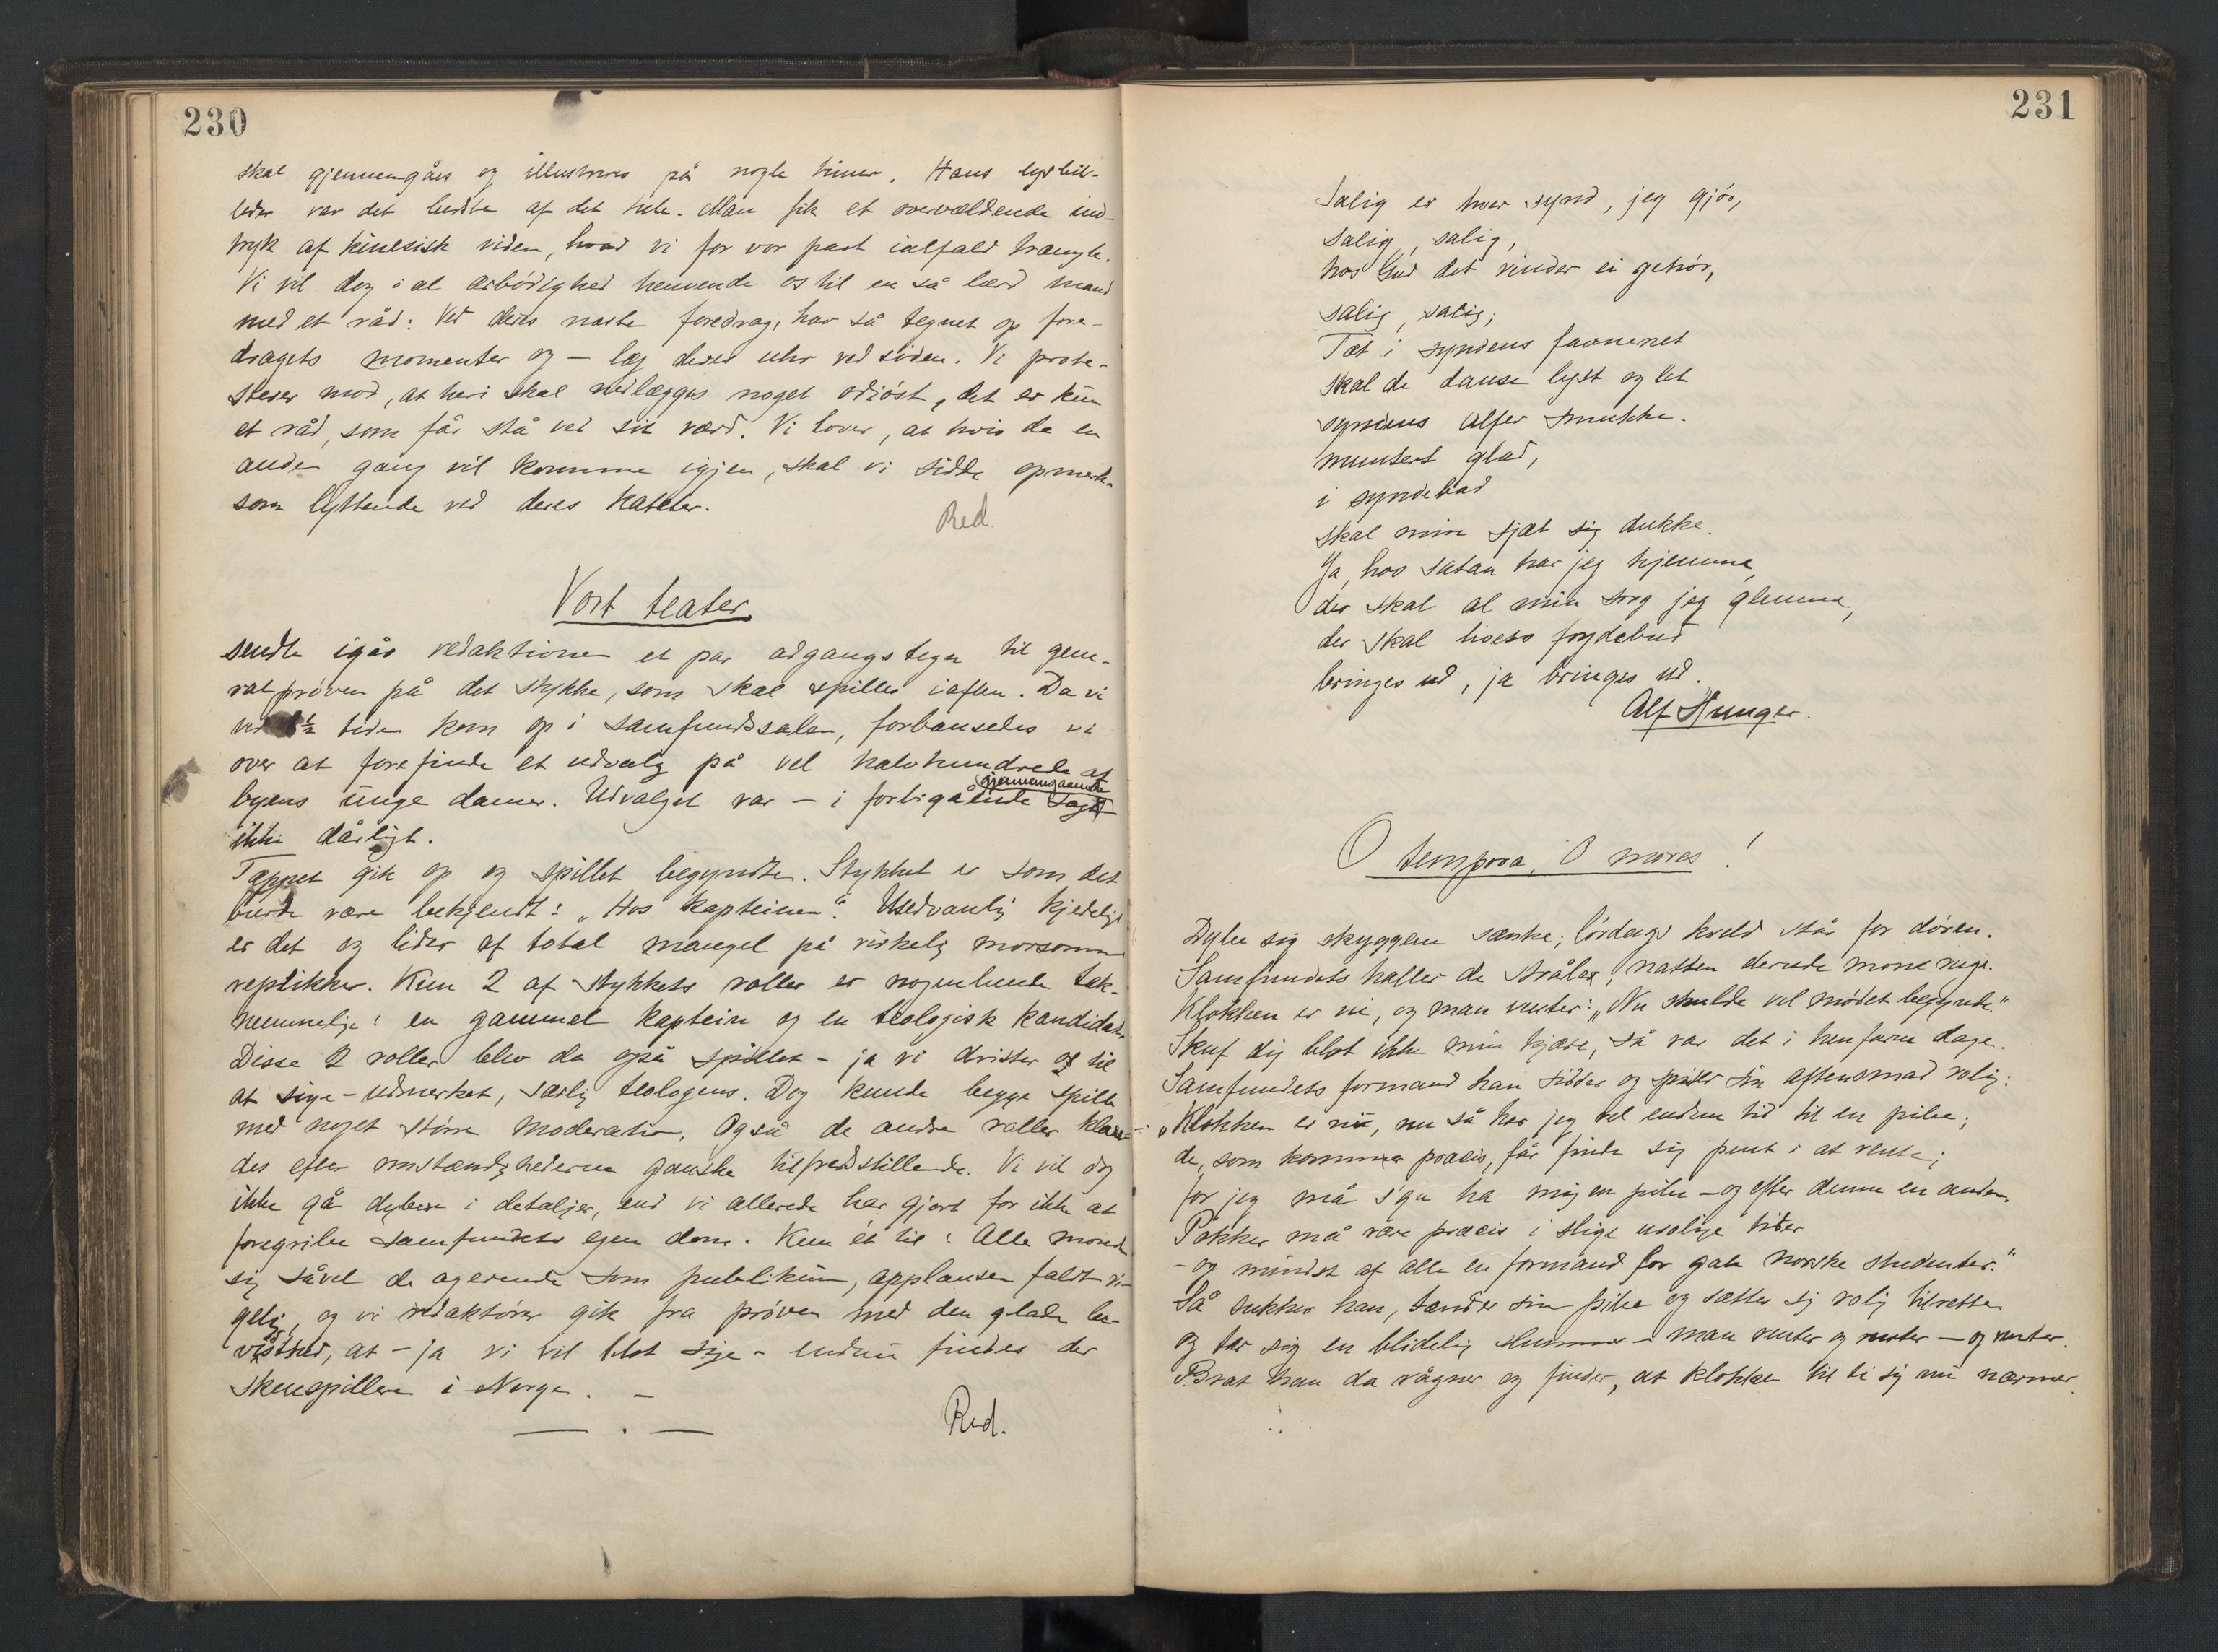 230
skal gjennemgåes og illustreres på nogle timer. Hans lysbil-
leder var det bedste af det hele. Man fik et overvældende ind-
tryk af kinesisk viden, hvad vi for vor part ialfald trængte.
Vi vil dog i al ærbødighed henvende os til en så lærd mand
med et råd: Ved deres næste foredrag, hav så tegnet op fore-
dragets momenter og – læg deres uhr ved siden. Vi prote-
sterer mod, at heri skal nedlægges noget odiøst, det er kun
et råd, som får stå ved sit værd. Vi lover, at hvis de en
anden gang vil komme igjen, skal vi sidde opmerk-
som lyttende ved deres kateter.
Red.
Vort teater
sendte igår redaktionen et par adgangstegn til gene-
ralprøven på det stykke, som skal spilles iaften. Da vi
ved ½ tiden kom op i samfundssalen, forbausedes vi
over at forefinde et udvalg på vel halvhundrede af
byens unge damer. Udvalget var – i forbigående sagt
gjennemgaaende
ikke dårligt.
Tæppet gik op og spillet begyndte. Stykket er som det
burde være bekjendt: „Hos kapteinen“. Usedvanlig kjedeligt
er det og lider af total mangel på virkelig morsomme
replikker. Kun 2 af stykkets roller er nogenlunde tak-
nemmelige: en gammel kaptein og en teologisk kandidat.
Disse 2 roller blev da også spillet – ja vi drister os til
at sige – udmerket, særlig teologens. Dog kunde begge spille
med noget større moderation. Også de andre roller klare-
des efter omstændighederne ganske tilfredsstillende. Vi vil dog
ikke gå dybere i detaljer, end vi allerede har gjort for ikke at
foregribe samfundets egen dom. Kun ét til: Alle morede
sig såvel de agerende som publikum, applausen faldt ri-
gelig, og vi redaktører gik fra prøven med den glade be-
vidsthed, at – ja vi vil blot sige – endnu findes der
skuespillere i Norge. –
Red.
231
Salig er hver synd, jeg gjør,
salig, salig,
hos Gud det vinder ei gehør,
salig, salig;
Tæt i syndens favnenet
skal de danse lyst og let
syndens alfer smukke.
muntert glad,
i syndebad
skal min sjæl sig dukke.
Ja, hos satan har jeg hjemme,
der skal al min sorg jeg glemme,
der skal livets frydebud
bringes ud, ja bringes ud.
Alf Hunger.
O tempora, O mores!
Dybe sig skyggene sænke; lørdags kveld står for døren.
Samfundets haller de stråler, natten derude mone ruge.
Klokken er ni, og man venter: „Nu skulde vel mødet begynde.“
Skuf dig blot ikke min kjære, så var det i henfarne dage.
Samfundets formand han sidder og spiser sin aftensmad rolig:
„Klokken er ni, nu så har jeg vel endnu tid til en pibe;
de, som kommer præcis, får finde sig pent i at vente;
for jeg må s'gu ha mig en pibe – og efter denne en anden.
Pokker må være præcis i slige usalige tider
– og mindst af alle en formand for gale norske studenter.“
Så sukker han, tænder sin pibe og sætter sig rolig tilrette
og tar sig en blidelig slummer – man venter og venter – og venter.
Brat han da vågner og finder, at klokken til ti sig nu nærmer